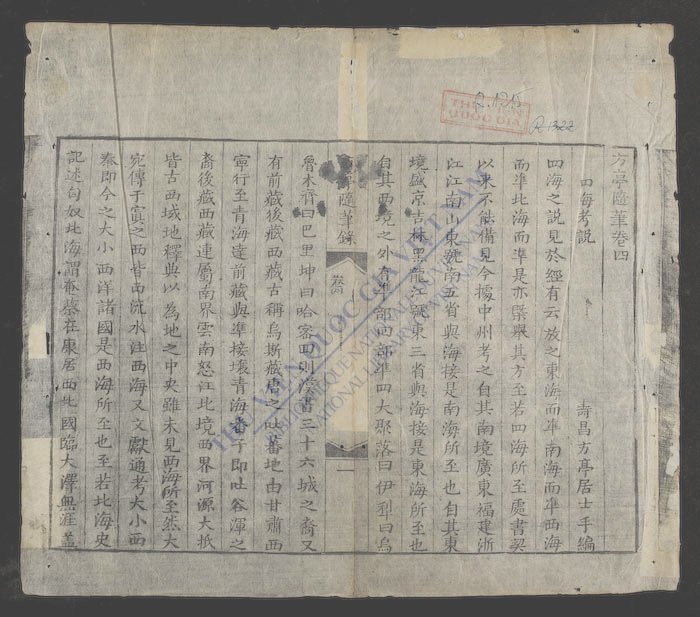 方亭隨筆卷四
四每考説
壽昌方亭居士手編
四海之説見於經有云放之東海而準南海而準西海
而準北海而準是亦槩舉其方至若四海所至處書契
以來不能備見今據中州考之自其南境廣東福建浙
江江南山東號南五省與海接是南海所至也自其東
境盛京吉林黑龍江號東三省與海接是東海所至也
自其西境之外有準部回部準四大聚落曰伊犁曰烏
隨筆錄
一
魯木齊曰巴里坤曰哈密回則漢書三十六城之裔又
有前藏後藏西藏古稱烏斯藏唐之吐蕃地由甘肅西
寧行至青海達前藏與準接壤青海番子即吐谷渾之
裔後藏西藏連屬南界雲南怒江北境西界河源大抵
皆古西域地釋典以為地之中央雖未見西海所至然大
宛傳于窴之西皆西流水注西海又文獻通考大小西
秦即今之大小西洋諸國是西海所至也至若北海史
記述匈奴北海謂奄蔡在康居西北國臨大澤無涯蓋
R.135
R.1322
THƯ VIỆN
QUỐC GIA
THƯ VIỆN QUỐC GIA VIỆT NAM
BIBLIOTHEQUE NATIONALE DU VIETNAM
NATIONAL LIBRARY OF VIETNAM